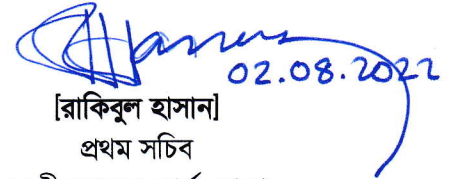 02.08.2022
[রাকিবুল হাসান]
প্রথম সচিব